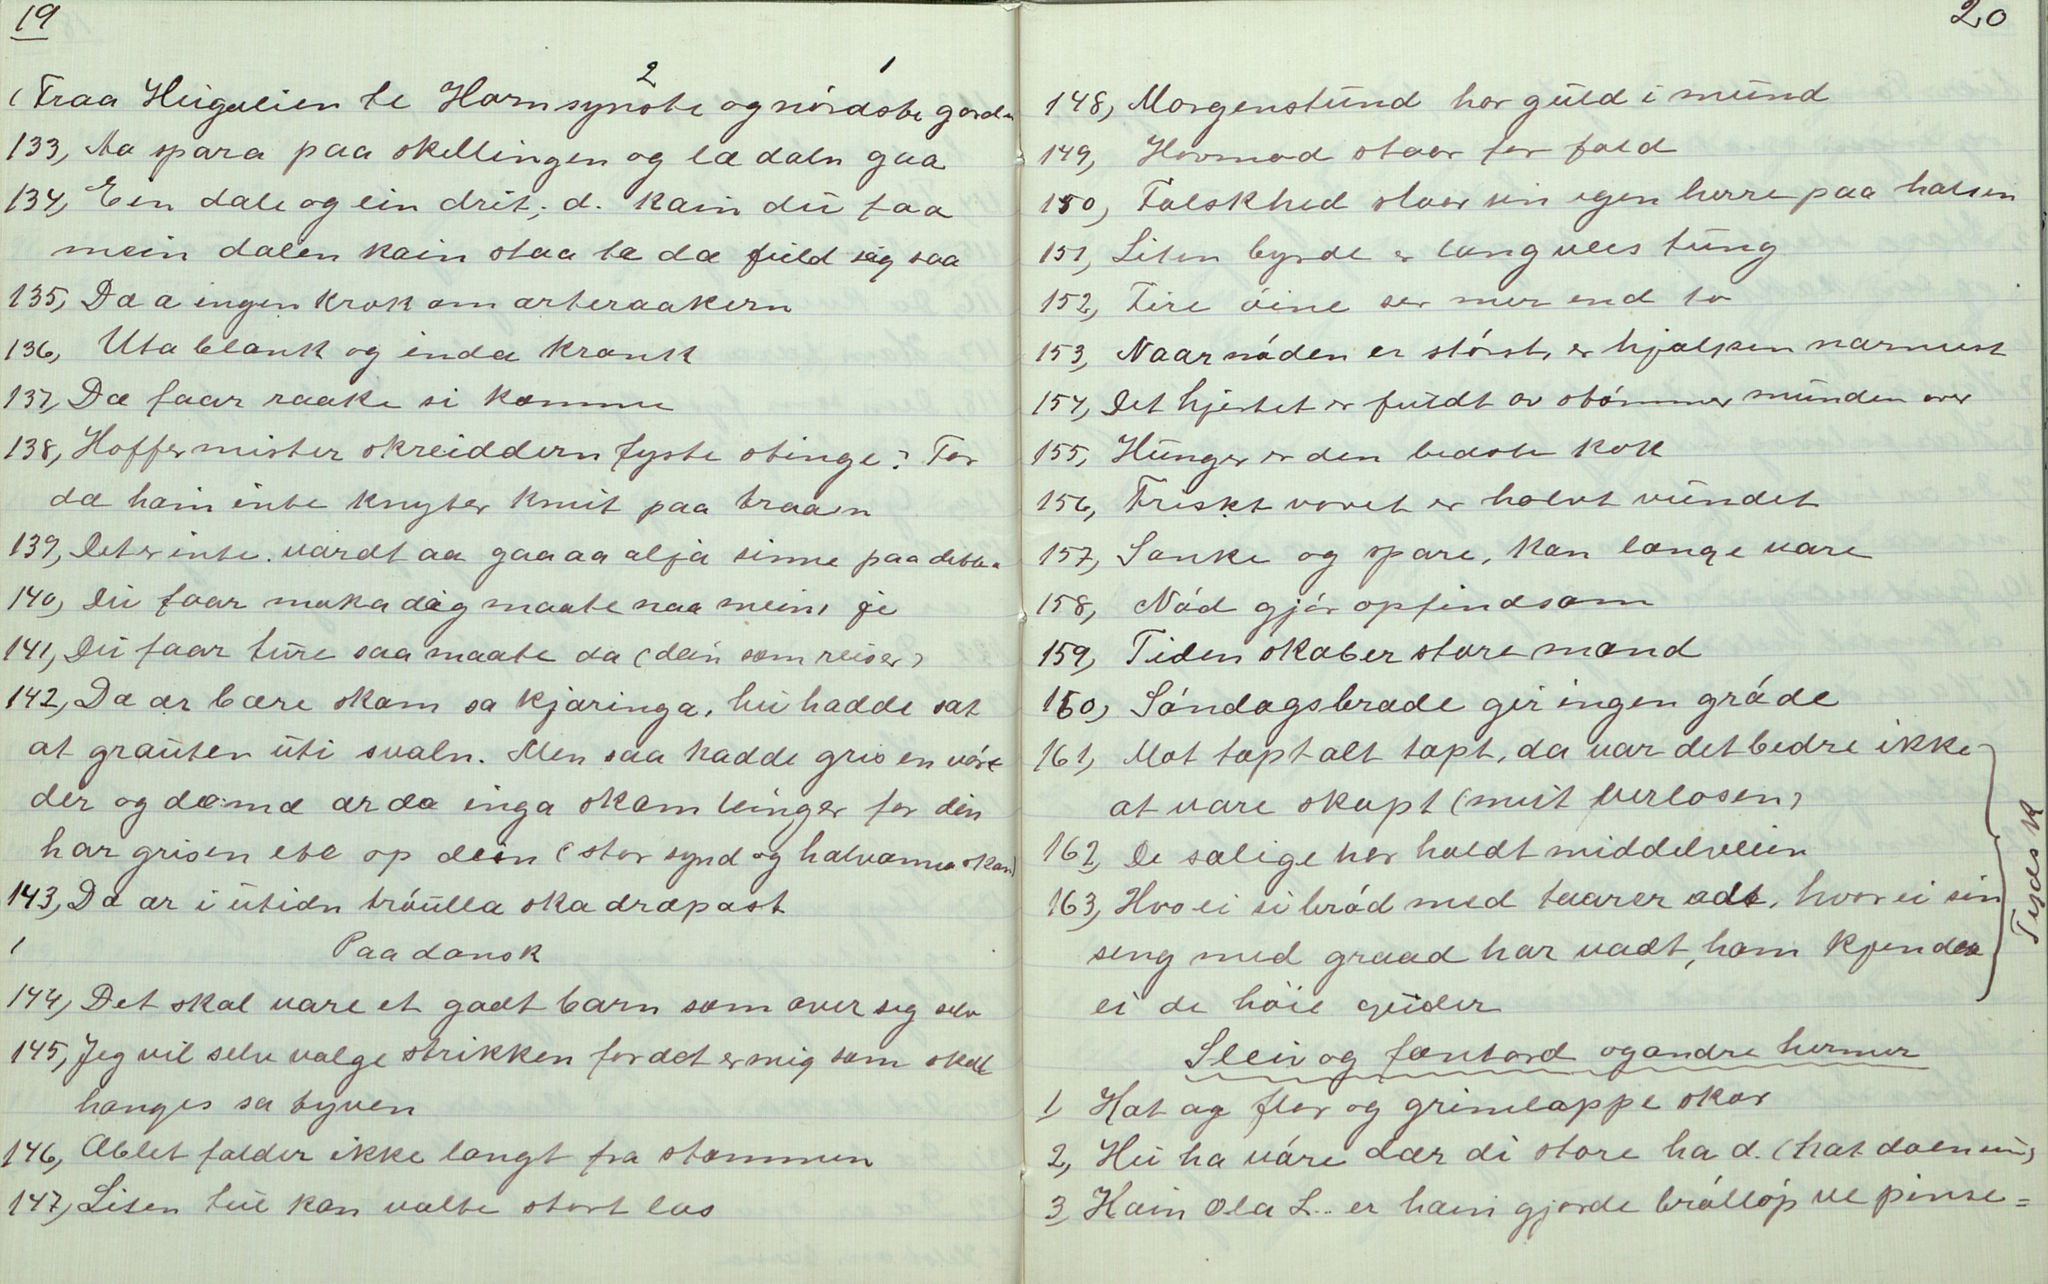 19
2 1
(Fraa Hugulien te Harn synste og nórdste gorda
133, Aa spara paa skellingen og læ daln gaa
134, Een dale og ein drit; d. kain dú taa
mein dalen kain staa te dæ fúld sig saa
135, Dæ a ingen krok om arteraakern
136, Uta blank og inda krank
137, Dæ faar raake si komme
138, Hoffer mister skreiddern fyste stinge? For
dæ hain inte knyter knut paa traan
139, Det er inte vardt aa gaa aa alja sinne paa detta
140, Dú faar maka dæg maate naa mein, je
141, Dú faar túre saa maate da (dan som reiser)
142, Dæ ær bære skam sa kjæringa, hú hadde sat
at graúten úti svaln. Men saa hadde grisen vóre
der og dæmæ ær dæ inga skam leinger for din
har grisen ete op dein (stor synd og halvanna skam)
143, Dæ ær i útidn tróúlla ska dræpast
1 Paa dansk
144, Det skal være et godt barn som over sig selv
145, Jeg vil selv vælge strikken for det er mig som skal
hænges sa tyven
146, Æblet falder ikke langt fra stammen
147, Liten túe kan vælte stort las
20
148, Morgenstúnd har gúld i múnd
149, Hovmod staar for fald
150, Falskhed slaar sin egen herre paa halsen
151, Liten byrde er lang veis túng
152, Fire óine ser mer end to
153, Naar nóden er stórst, er hjælpen nærmest
154, Det hjertet er fúldt av stómmer múnden over
155, Húnger er den bedste kok
156, Friskt vovet er halvt vúndet
157, Sanke og spare, kan længe vare
158, Nód gjór opfindsom
159, Tiden skaber store mænd
160, Sóndagsbrade gir ingen gróde
161, Mot tapt alt tapt, da var det bedre ikke
at være skapt (mút verlosen)
162, De salige har holdt middelveien
163, Hvo ei si bród med taarer ædt, hvor ei sin
seng med graad har vædt, ham kjender
ei de hóie gúder
Tydsk
Sleiv og fantord og andre hermer
1 Hat ag flor og grimlappe skor
2, Hú ha váre dær di store ha d. (hat daen ú)
3 Hain Ola L.. er hain gjorde bróllóp ve pinse=